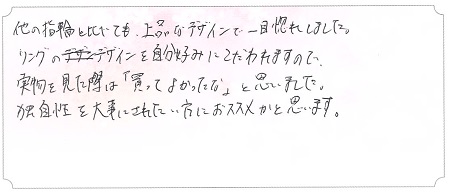 他の指輪と比べても、上品なデザインで一目惚れしました。
リングのデザインを自分好みにこだわれますので、
実物を見た際は「買ってよかったな」と思いました。
独自性を大事にされたい方におススメかと思います。